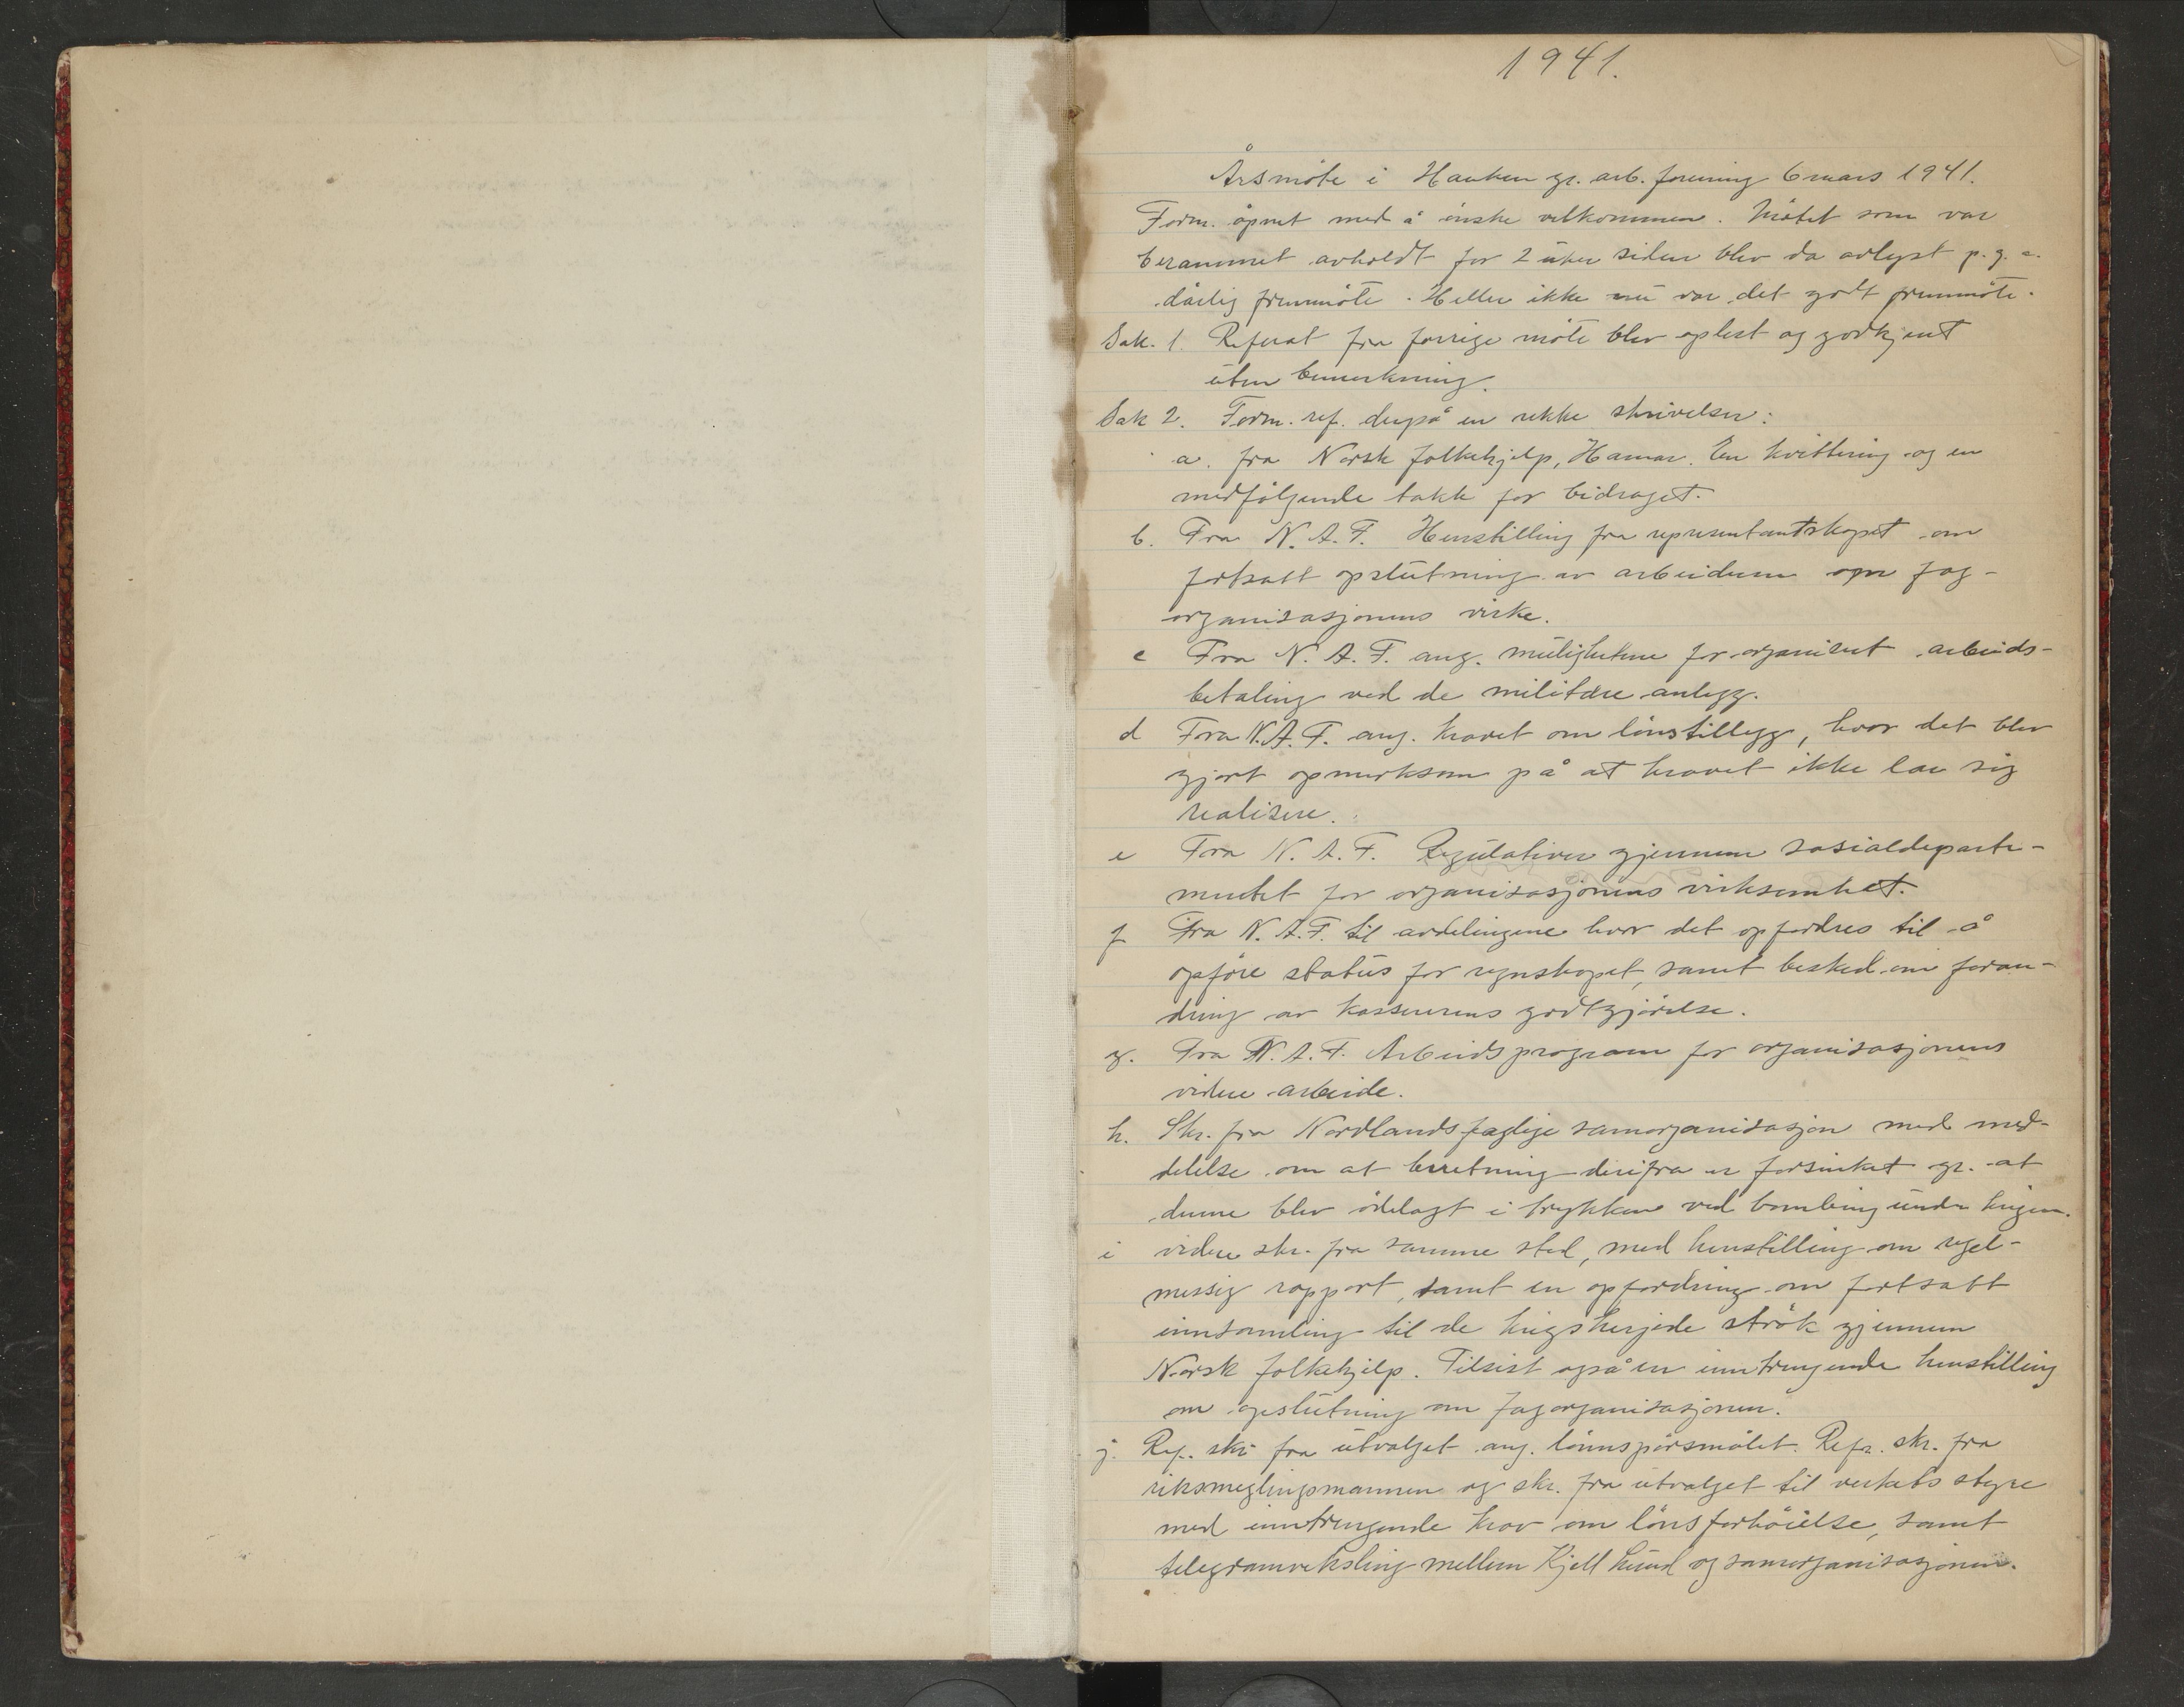 1941.
Årsmöte i Hauken gr. arb. forening 6 mars 1941.
Form. åpnet med å önske velkommen. Mötet som var
berammet avholdt for 2 uker siden blev da avlyst p. g. a.
dårlig fremmöte. Heller ikke nu var det godt fremmöte.
Sak. 1. Referat fra forrige möte blev oplest og godkjent
uten bemerkning.
Sak 2. Form. ref. derpå en rekke skrivelser:
a. fra Norsk folkehjelp, Hamar. En kvittering og en
medfölgende takk for bidraget.
b. Fra N. A. F. Henstilling fra representantskapet om
fortsatt opslutning av arbeiderne om fag-
organisasjonens virke.
c Fra N. A. F. ang. mulighetene for organisert arbeids-
betaling ved de militære anlegg.
d Fra N. A. F. ang. kravet om lönstillegg, hvor det blev
gjort opmerksom på at kravet ikke lar sig
realisere.
e Fra N. A. F. Regulativer gjennem sosialdeparte-
mentet for organisasjonens virksomhet.
f Fra N. A. F. til avdelingene hvor det opfordres til å
opföre status for regnskapet, samt beskjed om foran-
dring av kassererens godtgjörelse.
g. Fra N. A. F. Arbeidsprogram for organisasjonens
videre arbeide.
h. Skr. fra Nordlands faglige samorganisasjon med med-
delelse om at beretning derifra er forsinket gr. at
denne blev ödelagt i trykken ved bombing under krigen.
i videre skr. fra samme sted, med henstilling om regel-
messig rapport, samt en opfordring om fortsatt
innsamling til de krigsherjede strök gjennem
Norsk folkehjelp. Tilsist også en inntrengende henstilling
om opslutning om fagorganisasjonen.
j. Ref. skr fra utvalget ang. lönnspörsmålet. Refr. skr. fra
riksmeglingsmannen og skr. fra utvalget til verkets styre
med inntrengende krav om lönsforhöielse, samt
telegramveksling mellem Kjell Lund og samorganisasjonen.